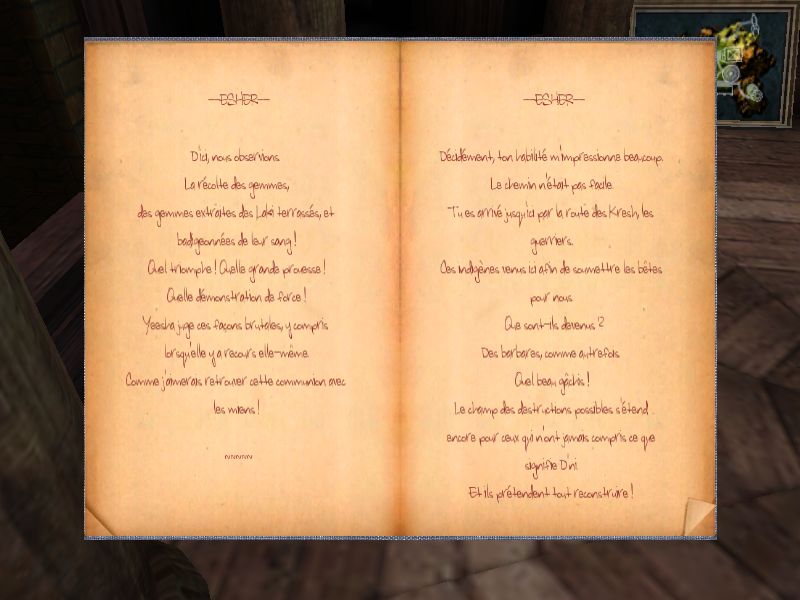 ESHER
D'ici, nous observions
La récolte des gemmes,
des gemmes extraites des Laki terrassés, et
badigeonnées de leur sang !
Quel triomphe ! Quelle grande prouesse !
Quelle démonstration de force !
Yeesha juge ces façons brutales, y compris
lorsqu'elle y a recours elle-même.
Comme j'aimerais retrouver cette communion avec
les miens !
NNNNN
ESHER
Décidément, ton habilité m'impressionne beaucoup.
Le chemin n'était pas facile.
Tu es arrivé jusqu'ici par la route des Kresh, les
guerriers.
Ces indigènes venus ici afin de soumettre les bêtes
pour nous
Que sont-ils devenus ?
Des barbares, comme autrefois
Quel beau gâchis !
Le champ des destructions possibles s'étend
encore pour ceux qui n'ont jamais compris ce que
signifie D'ni
Et ils prétendent tout reconstruire !